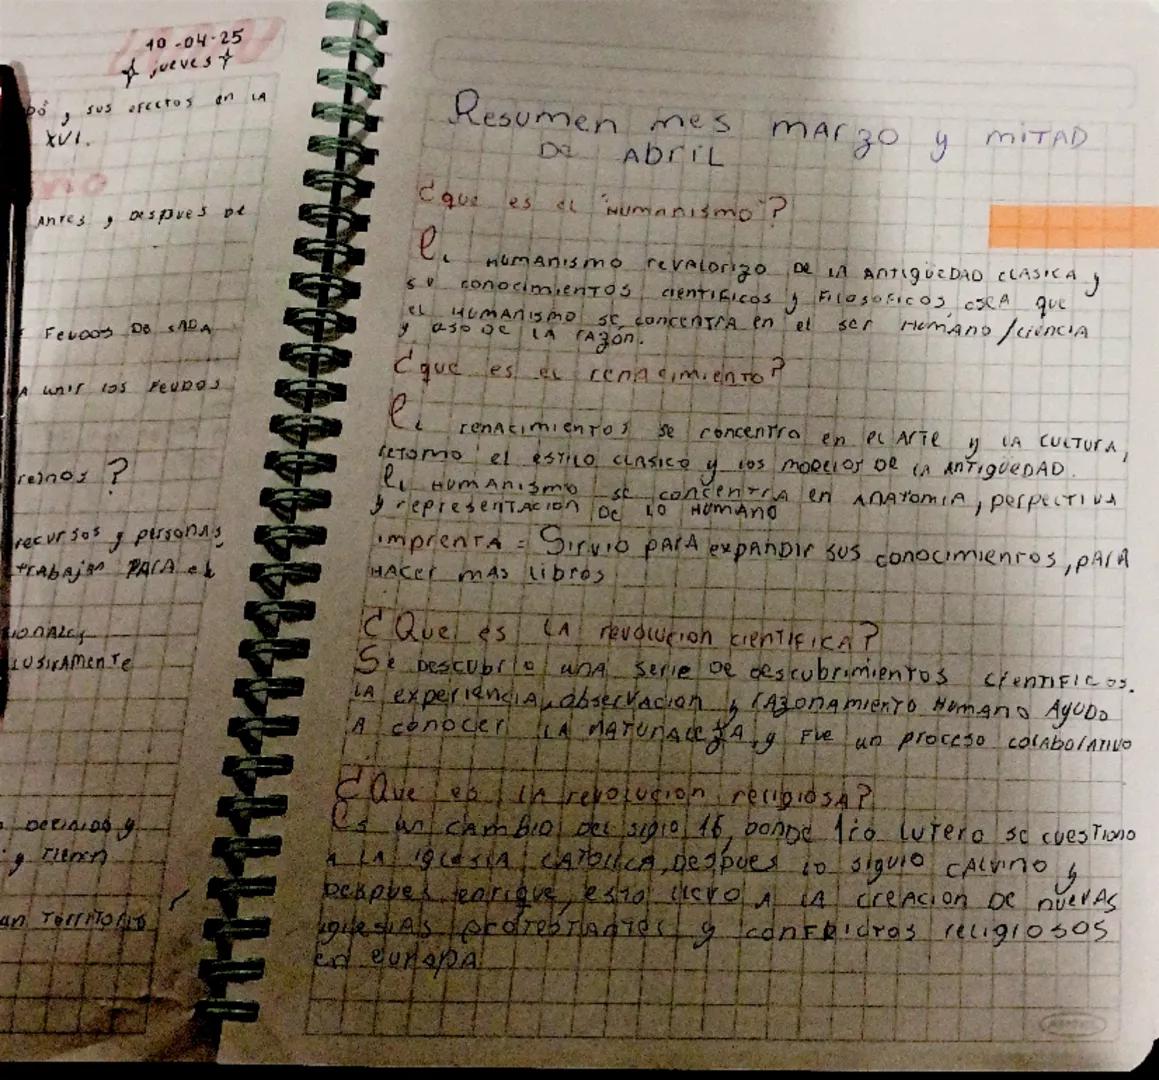 10-04-25
jueves
y sus efectos en la
XVI.
Antes y Despues De
Feudos DB sADA
A unir los Feudos
reinos?
recursos y personas
trabajan PARA el
lusivamente
Decidido y
y tienen
an Territorio
Resumen mes marzo y mitad
De Abril
¿que es el "Humanismo"?
El Humanismo revalorizo De la Antigüedad clasica y
su conocimientos cientificos y Filosoficos, osea que
el Humanismo se concentra en el ser Humano/ciencia
y uso De la razón.
¿que es el renacimiento?
El renacimientos se concentro en el Arte y la cultura,
retomo el estilo clasico y los modelos De la Antigüedad.
El Humanismo se concentra en Anatomia, perpectiva
y representacion De lo Humano
imprenta = Sirvio para expandir sus conocimientos, para
Hacer mas libros
¿Que es la revolucion cientifica?
Se Descubrio una serie De descubrimientos cientificos.
la experiencia, observacion y razonamiento Humano Ayudo
A conocer la naturaleza, y Fue un proceso colaborativo
¿Que es la revolucion religiosa?
Es un cambio del siglo 16, donde 1ro lutero se cuestiono
A la iglesia catolica, Despues lo siguio calvino y
Despues enrique, esto llevo A la creacion De nuevas
iglesias protestantes y conflictos religiosos
en europa